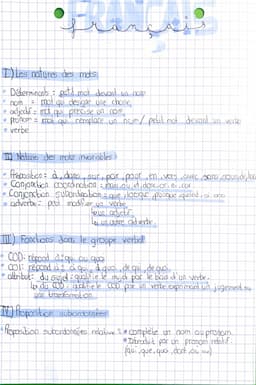 FRANÇAIS
français
I) Les natures des mots
• Déterminants : petit mot devant un nom
• nom = mot qui désigne une chose
• adjectif = mot qui précise un nom
• pronom = mot qui remplace un nom / petit mot devant un verbe
• verbe
II) Nature des mots invariables
• Préposition = à, dans, sur, par, pour, en, vers, avec, sans, sous, de
• Conjonction coordination = mais, ou, et, donc, or, ni, car
• Conjonction subordination = que, lorsque, puisque, quand, si
• adverbe = peut modifier un verbe
↳ un adjectif
↳ un autre adverbe
III) Fonctions dans le groupe verbal
• COD : répond à : qui ou quoi
• COI : répond à : à qui, à quoi, de qui, de quoi
• attribut : du sujet : qualifie le sujet par le biais d'un verbe
↳ du COD : qualifie le COD par un verbe exprimant un jugement ou une transformation
IV) Proposition subordonnées
• Proposition subordonnées relative : • complète un nom ou pronom
• Introduit par un pronom relatif
(qui, que, quoi, dont, où)